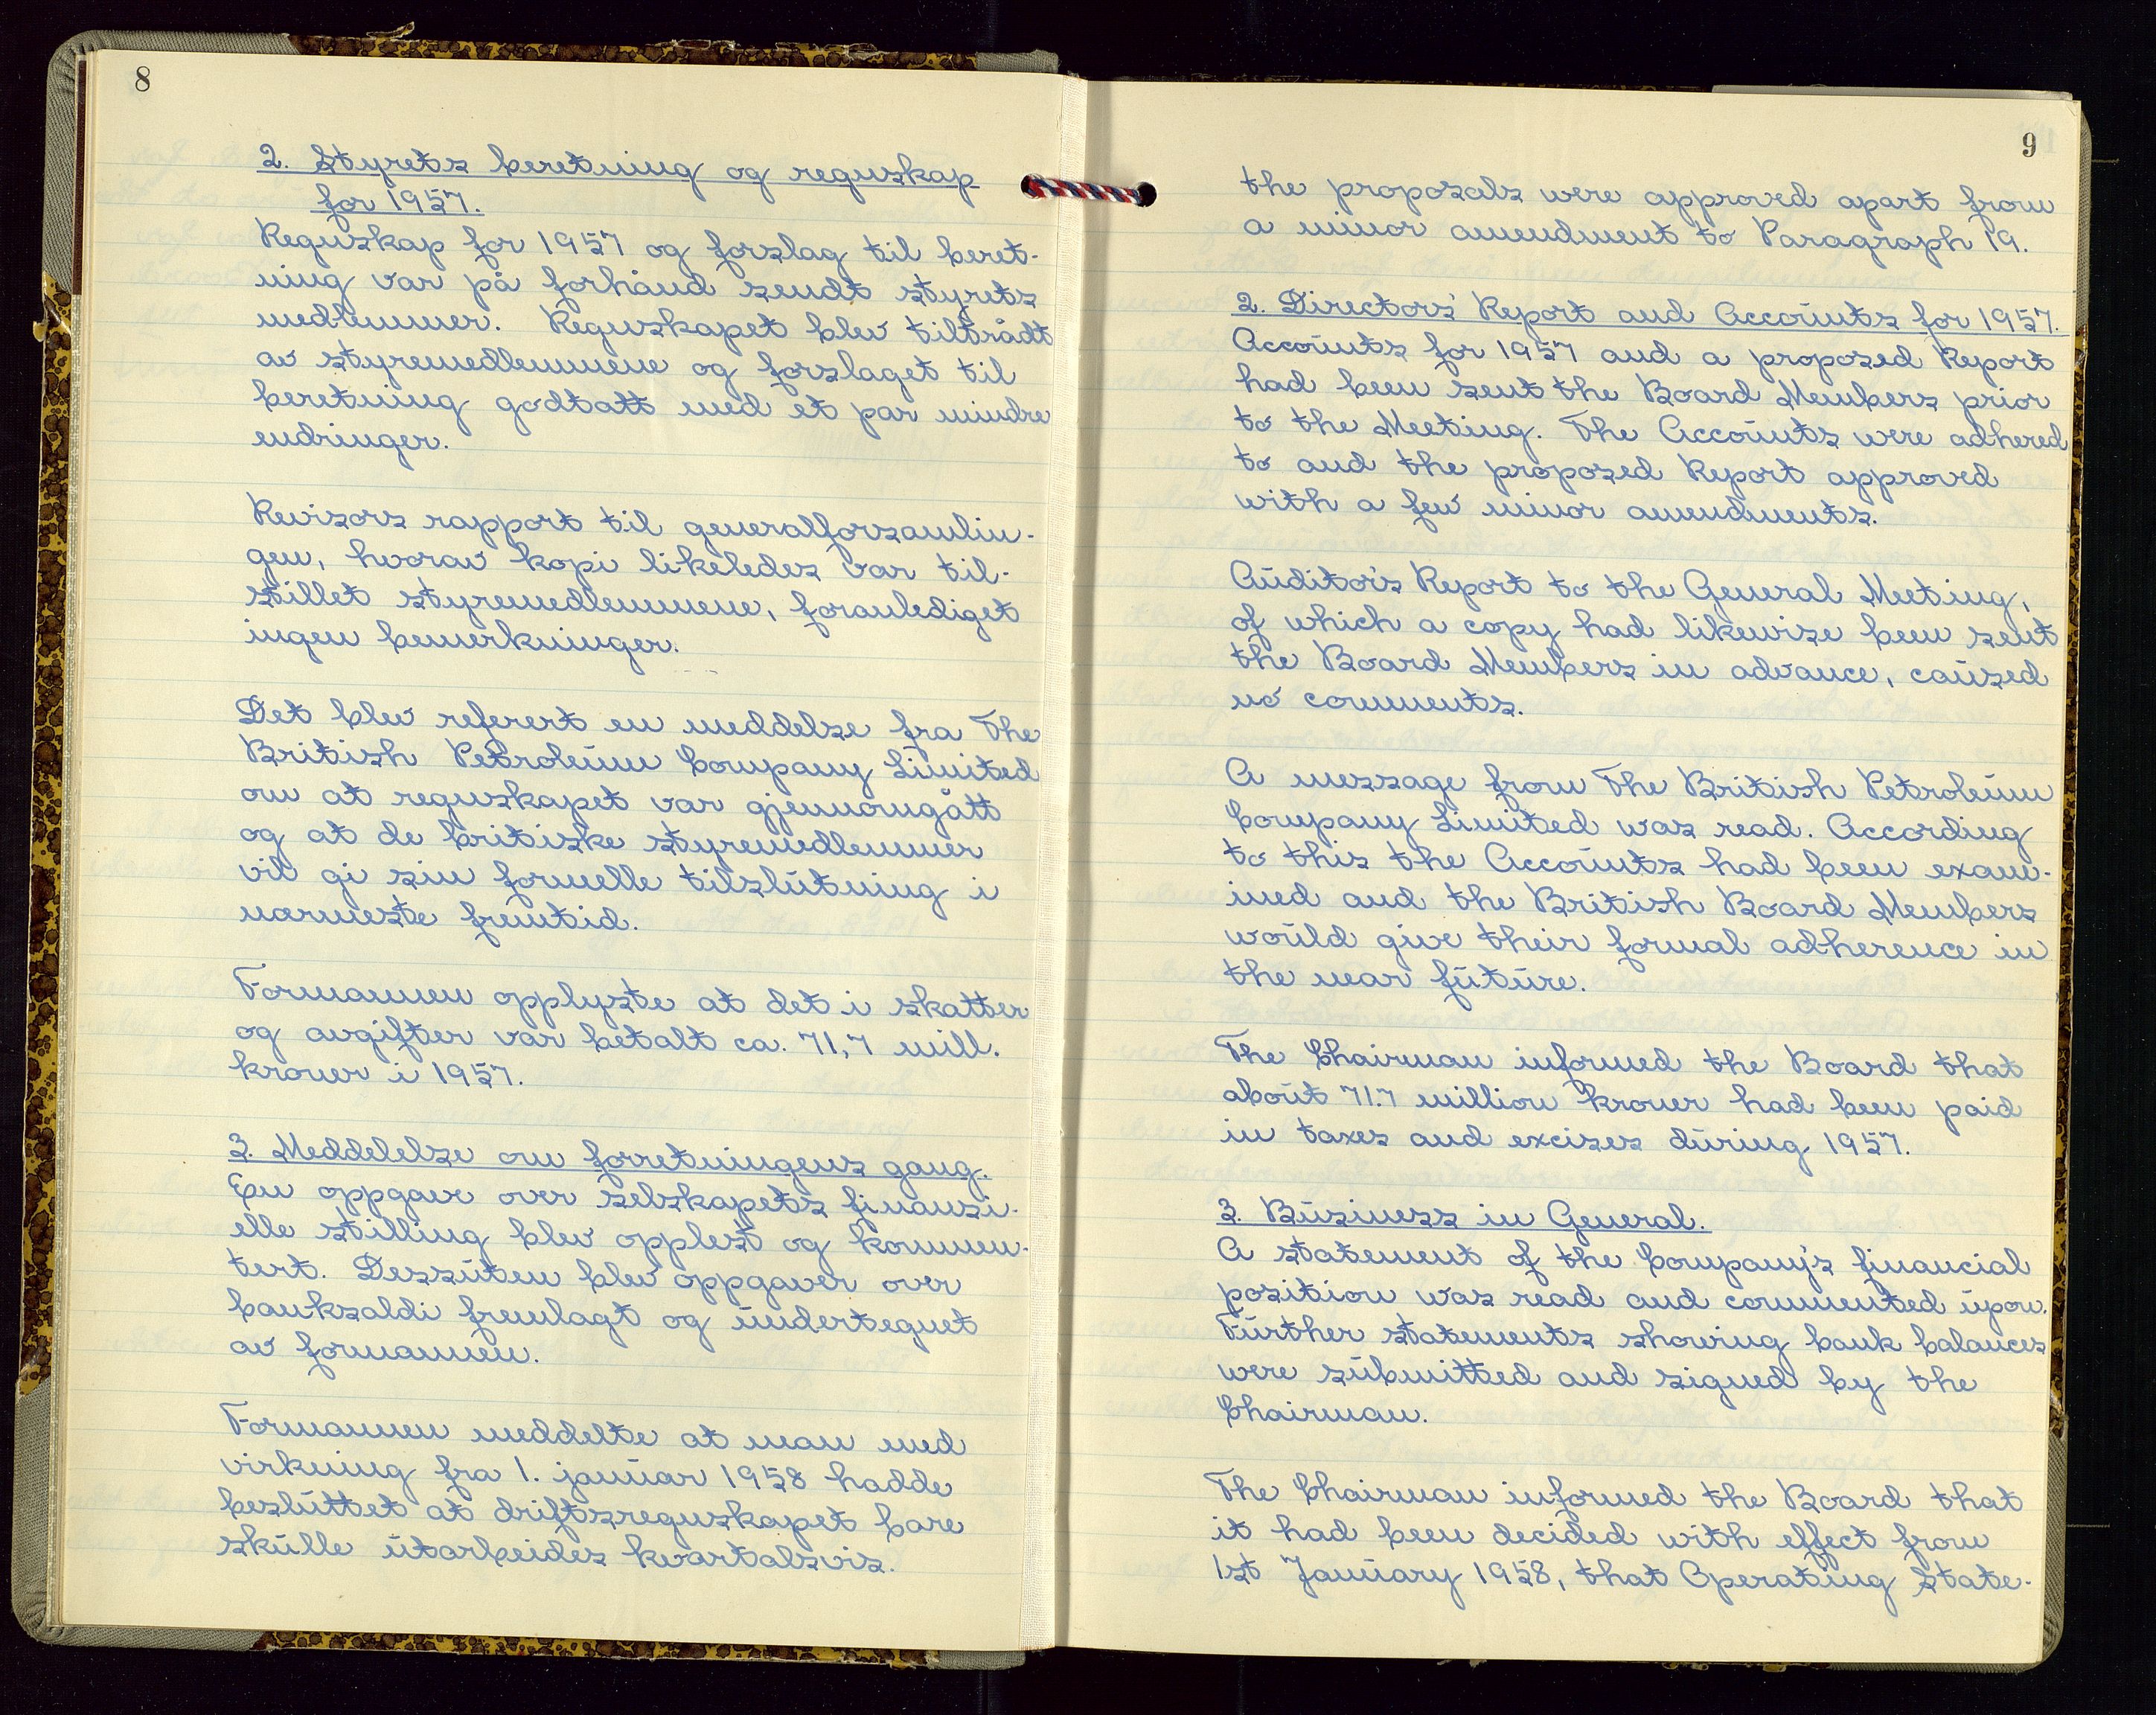 8
2. Styrets beretning og regnskap
for 1957.
Regnskap for 1957 og forslag til beret-
ning var på forhånd sendt styrets
medlemmer. Regnskapet blev tiltrådt
av styremedlemmene og forslaget til
beretning godtatt med et par mindre
endringer.
Revisors rapport til generalforsamlin-
gen, hvorav kopi likeledes var til-
stillet styremedlemmene, foranlediget
ingen bemerkninger.
Det blev referert en meddelse fra The
British Petroleum Company Limited
om at regnskapet var gjennomgått
og at de britiske styremedlemmer
vil gi sin formelle tilslutning i
nærmeste fremtid.
Formannen opplyste at det i skatter
og avgifter var betalt ca. 71,7 mill.
kroner i 1957.
3. Meddelelse om forretningens gang.
En oppgave over selskapets finansi-
elle stilling blev opplest og kommen-
tert. Dessuten blev oppgaver over
banksaldi fremlagt og undertegnet
av formannen.
Formannen meddelte at man med
virkning fra 1. januar 1958 hadde
besluttet at driftsregnskapet bare
skulle utarbeides kvartalsvis.
9
the proposals were approved apart from
a minor amendment to Paragraph 19.
2. Directors' Report and Accounts for 1957.
Accounts for 1957 and a proposed Report
had been sent the Board Members prior
to the Meeting. The Accounts were adhered
to and the proposed Report approved
with a few minor amendments.
Auditor's Report to the General Meeting,
of which a copy had likewise been sent
the Board Members in advance, caused
no comments.
A message from The British Petroleum
Company Limited was read. According
to this the Accounts had been exam-
ined and the British Board Members
would give their formal adherence in
the near future.
The Chairman informed the Board that
about 71.7 million kroner had been paid
in taxes and excises during 1957.
3. Business in General.
A statement of the Company's financial
position was read and commented upon.
Further statements showing bank balances
were submitted and signed by the
Chairman.
The Chairman informed the Board that
it had been decided with effect from
1st January 1958, that Operating State-